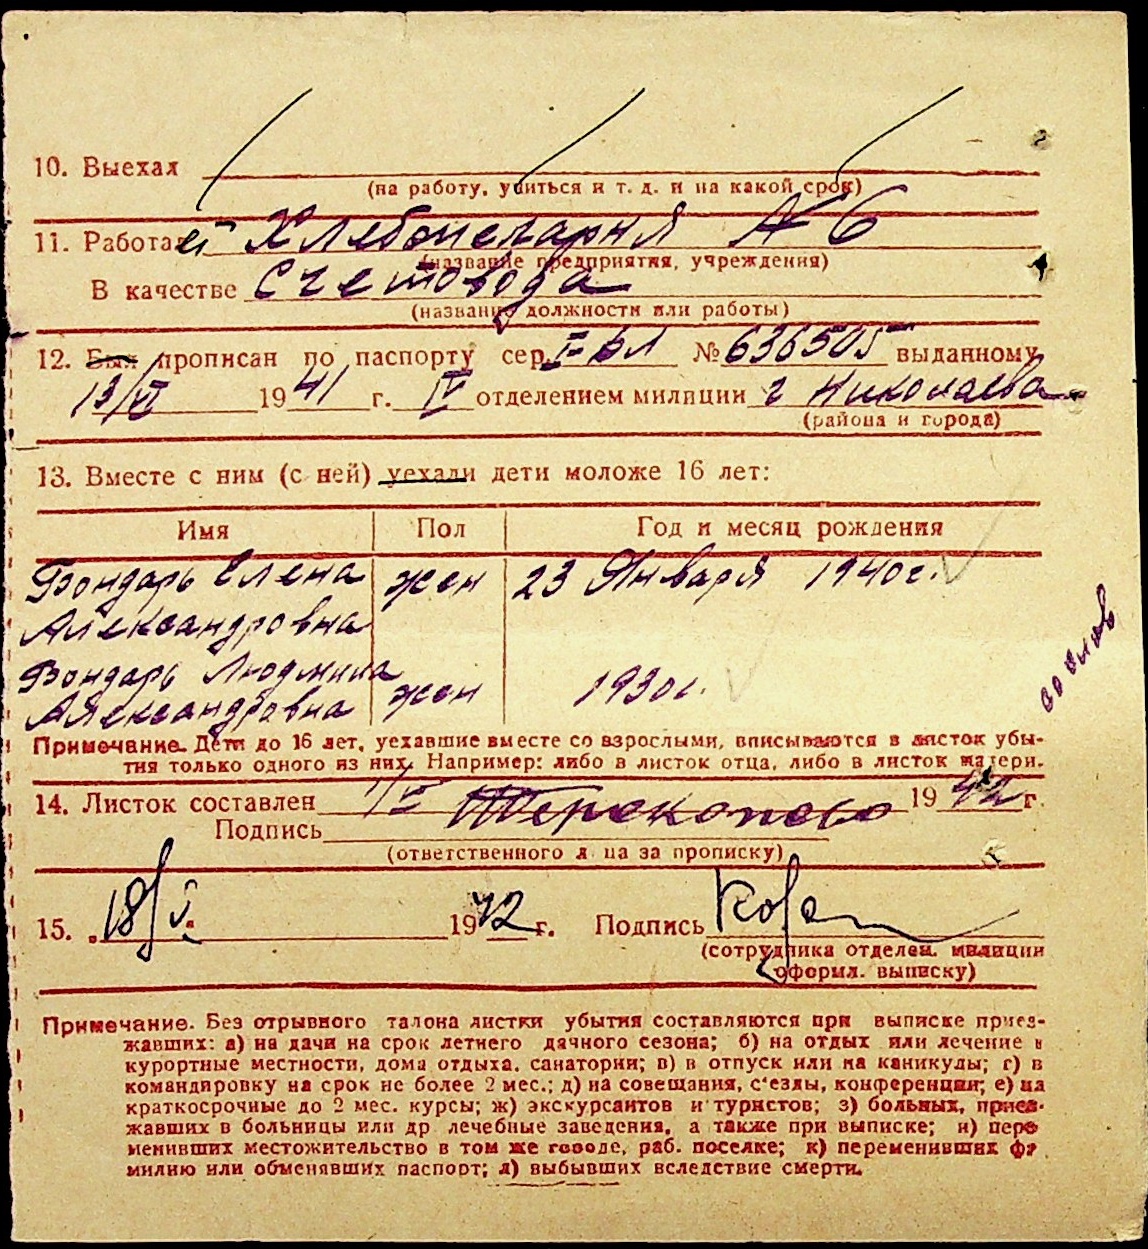 10. Выехал
(на работу, учиться и т. д. и на какой срок)
11. Работает Хлебопекарня № 6
(название предприятия, учреждения)
В качестве Счетовода
(название должности или работы)
12. Был прописан по паспорту сер. I-БЛ № 636505 выданному
13/VI 1941 г. IV отделением милиции г Николаева
(района и города)
13. Вместе с ним (с ней) уехали дети моложе 16 лет:
Имя Пол Год и месяц рождения
Бондарь Елена жен 23 Января 1940г.
Александровна
Бондарь Людмила
Александровна жен 1930г.
Примечание. Дети до 16 лет, уехавшие вместе со взрослыми, вписываются в листок убы-
тия только одного из них. Например: либо в листок отца, либо в листок матери.
14. Листок составлен 1942 г.
Подпись
(ответственного лица за прописку)
15. 18/V 1942 г. Подпись
(сотрудника отделен. милиции
оформл. выписку)
Примечание. Без отрывного талона листки убытия составляются при выписке приез-
жавших: а) на дачи на срок летнего дачного сезона; б) на отдых или лечение в
курортные местности, дома отдыха, санатории; в) в отпуск или на каникулы; г) в
командировку на срок не более 2 мес.; д) на совещания, с'езды, конференции; е) на
краткосрочные до 2 мес. курсы; ж) экскурсантов и туристов; з) больных, приез-
жавших в больницы или др лечебные заведения, а также при выписке; и) пере
менивших местожительство в том же городе, раб. поселке; к) переменивших фа
милию или обменявших паспорт; л) выбывших вследствие смерти.